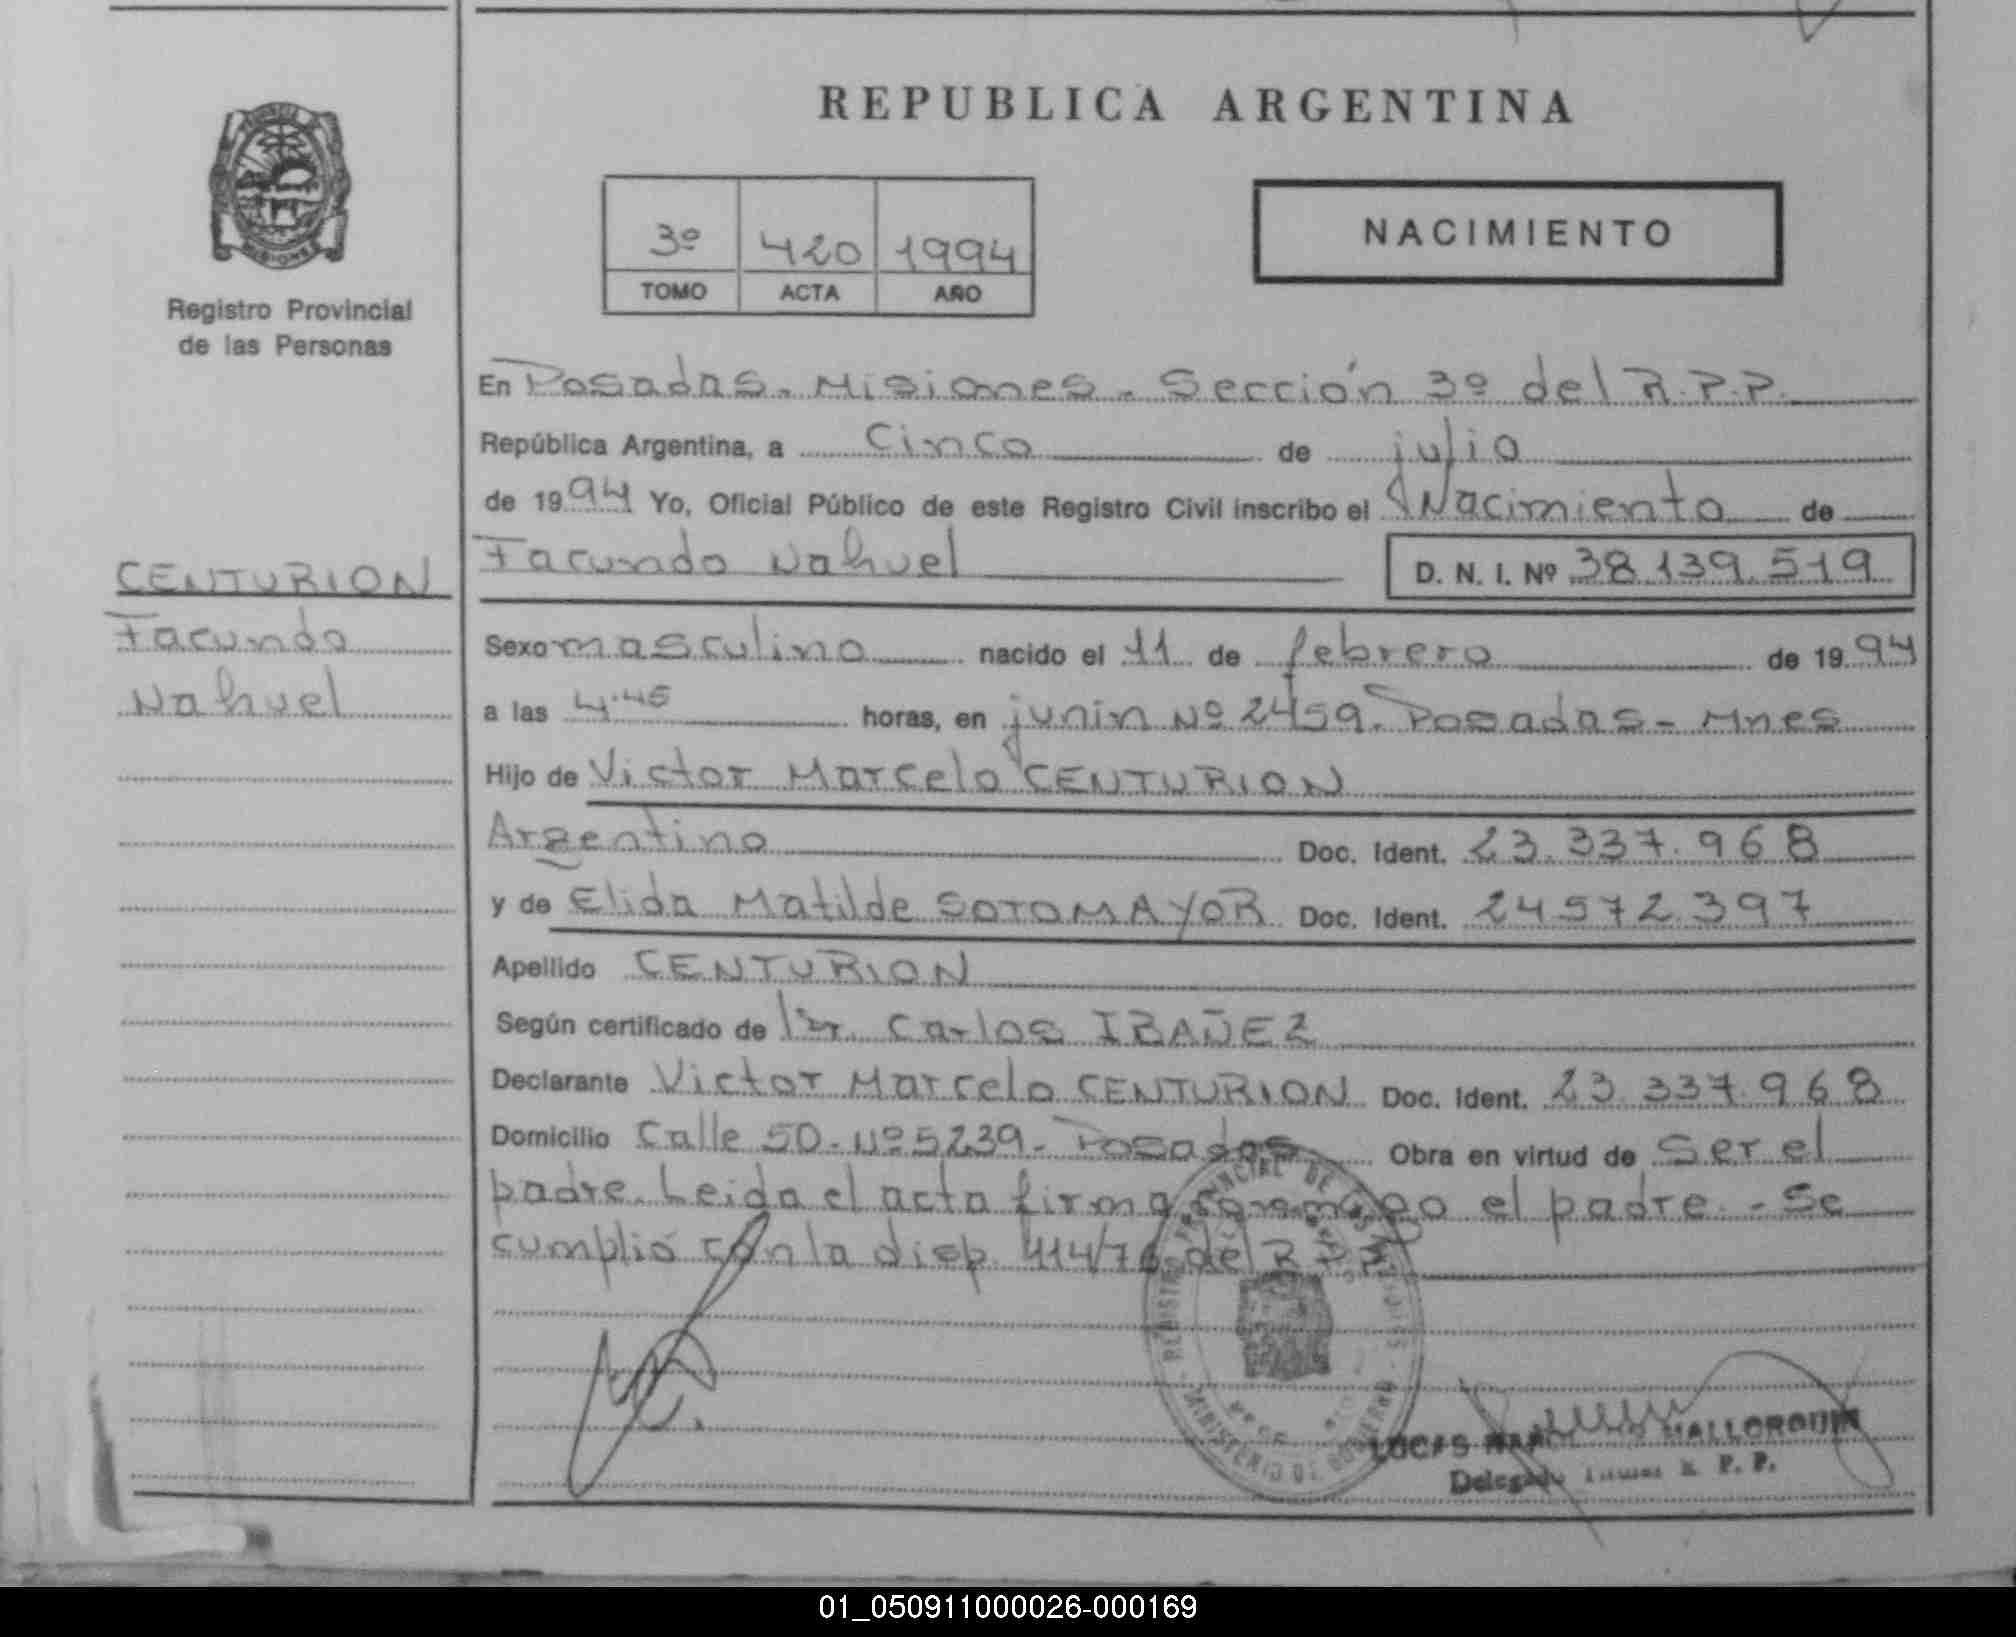 REPUBLICA ARGENTINA
Registro Provincial
de las Personas
3º 420 1994
TOMO ACTA AÑO
NACIMIENTO
CENTURION
Facundo
Nahuel
En Posadas - Misiones - Sección 3º del R.P.P.
República Argentina, a cinco de julio
de 1994 Yo, Oficial Público de este Registro Civil inscribo el Nacimiento de
Facundo Nahuel D. N. I. Nº 38.139.519
Sexo masculino nacido el 11 de febrero de 1994
a las 4:45 horas, en junin Nº 2459. Posadas - Mnes
Hijo de Victor Marcelo CENTURION
Argentino Doc. Ident. 23.337.968
y de Elida Matilde SOTOMAYOR Doc. Ident. 24.572.397
Apellido CENTURION
Según certificado de Dr. Carlos IBAÑEZ
Declarante Victor Marcelo CENTURION Doc. Ident. 23.337.968
Domicilio Calle 50 - Nº 5239 - Posadas Obra en virtud de ser el
padre. Leida el acta firma conmigo el padre. - Se
cumplió con la disp. 414/76 del R.P.P.
MINISTERIO DE GOBIERNO
LUCAS MALLORQUIN
Delegado R. P. P.
01_050911000026-000169